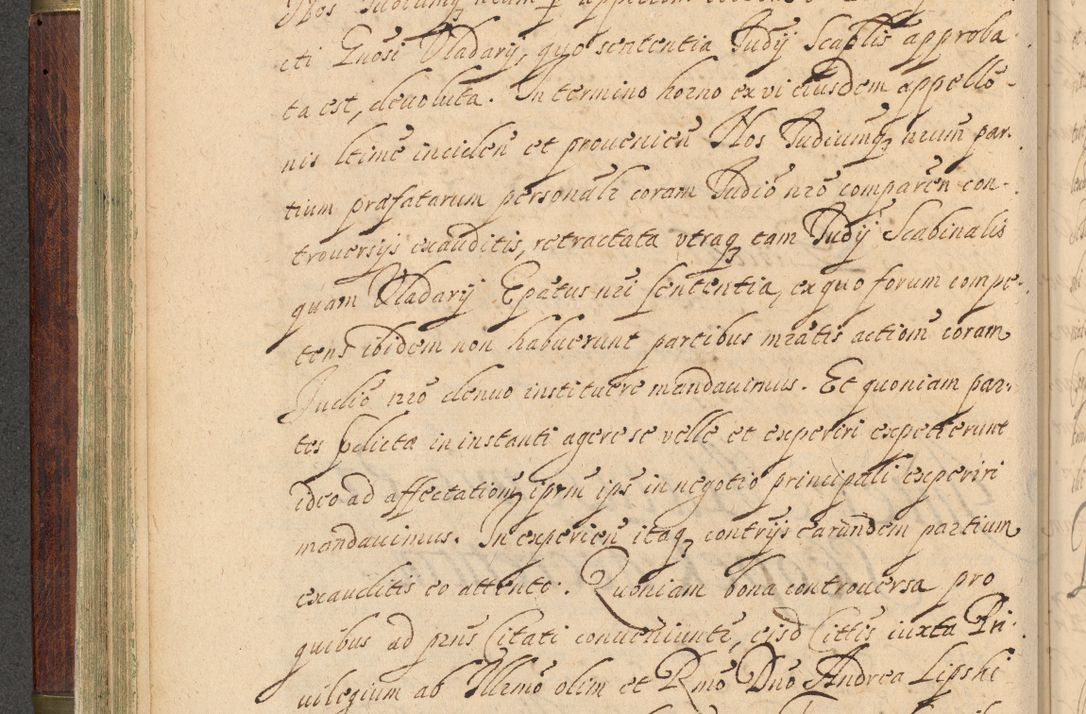 Nos Judiumq₃ nrum p appellõm
cti Gnosi Vladarij, quo sententia Judij Scablis approba-
ta est, devoluta. In termino horno ex vi eiusdem appellõ-
nis ltime inciden̄ et provenien̄ Nos Judiumq₃ nrum par-
tium præfatarum personalr coram Judio nrō comparen̄ con-
troversijs exauditis, retractata utraq₃ tam Judij Scabinalis
quam Vladarij Epatus nri sententia, ex quo forum compe-
tens ibidem non habuerunt partibus mratis actiom̄ coram
Judio nrō denuo instituere mandavimus. Et quoniam par-
tes pdictæ in instanti agere se velle et experiri expetierunt
ideo ad affectationẽ ipsrm ips in negotio principali experiri
mandavimus. In experien̄ itaq₃ contrijs earundem partium
exauditis eo attento. Quoniam bona controversa pro
quibus ad prns Citati conveniunt̃, eisd̃ Cittis iuxta Pri-
vilegium ab Illrmo olim et Rmō Dnō Andrea Lipski